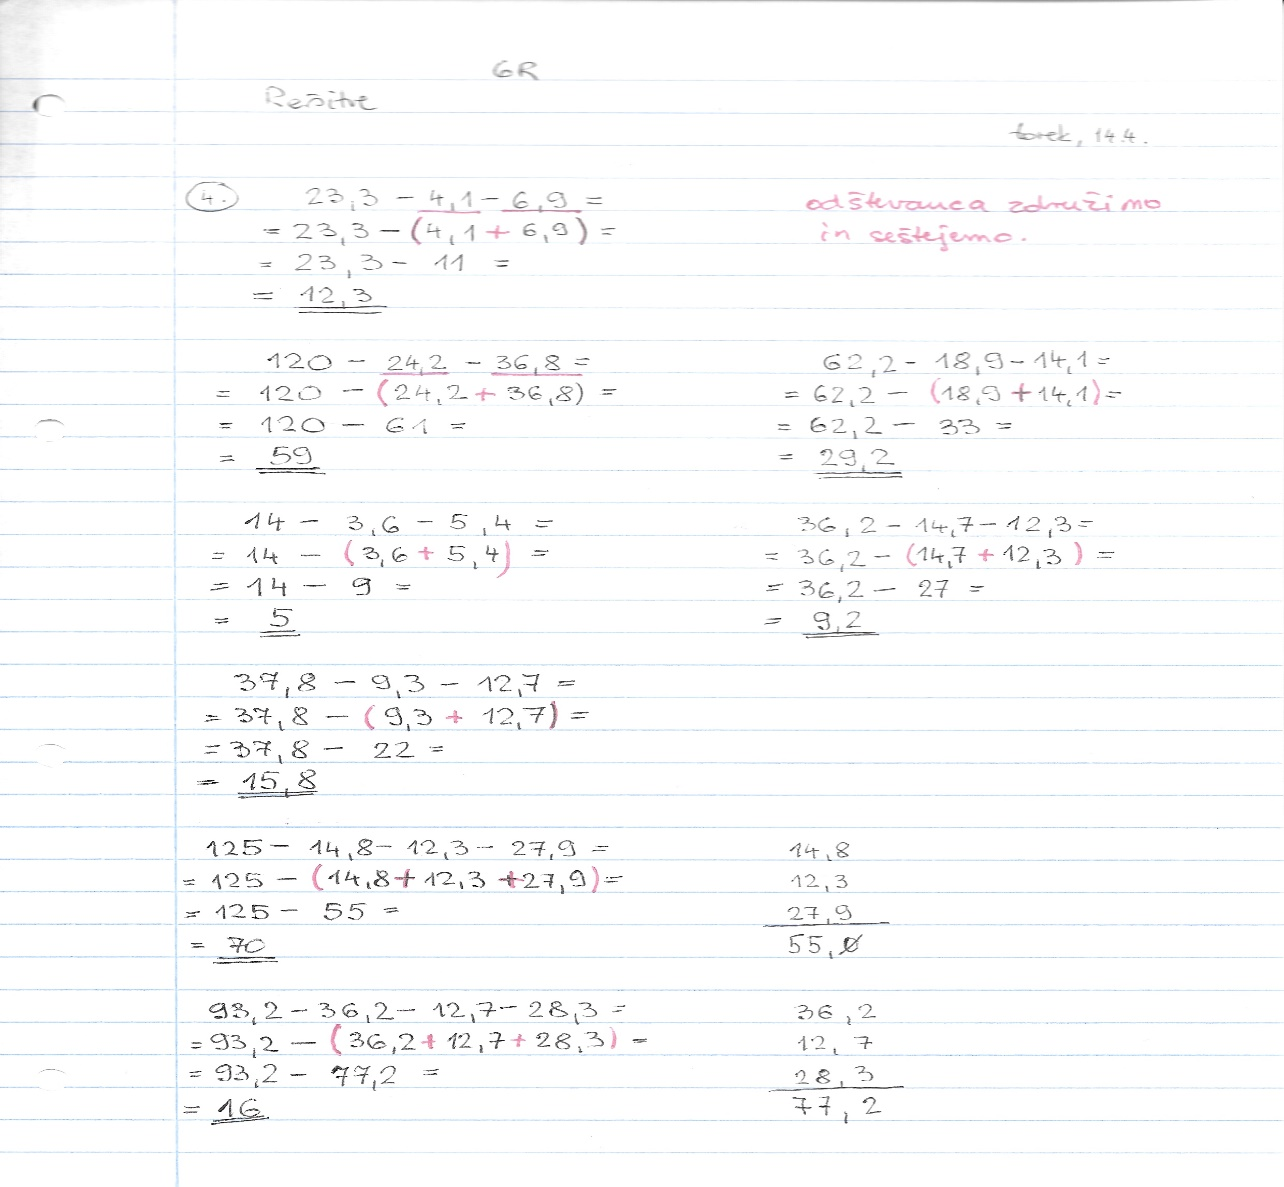 GR
Rešitve
torek, 14.4.
4. 23,3 - 4,1 - 6,9 =
= 23,3 - (4,1 + 6,9) =
= 23,3 - 11 =
= 12,3
odštevanca združimo
in seštejemo.
120 - 24,2 - 36,8 =
= 120 - (24,2 + 36,8) =
= 120 - 61 =
= 59
62,2 - 18,9 - 14,1 =
= 62,2 - (18,9 + 14,1) =
= 62,2 - 33 =
= 29,2
14 - 3,6 - 5,4 =
= 14 - (3,6 + 5,4) =
= 14 - 9 =
= 5
36,2 - 14,7 - 12,3 =
= 36,2 - (14,7 + 12,3) =
= 36,2 - 27 =
= 9,2
37,8 - 9,3 - 12,7 =
= 37,8 - (9,3 + 12,7) =
= 37,8 - 22 =
= 15,8
125 - 14,8 - 12,3 - 27,9 =
= 125 - (14,8 + 12,3 + 27,9) =
= 125 - 55 =
= 70
14,8
12,3
27,9
55,0
93,2 - 36,2 - 12,7 - 28,3 =
= 93,2 - (36,2 + 12,7 + 28,3) =
= 93,2 - 77,2 =
= 16
36,2
12,7
28,3
77,2